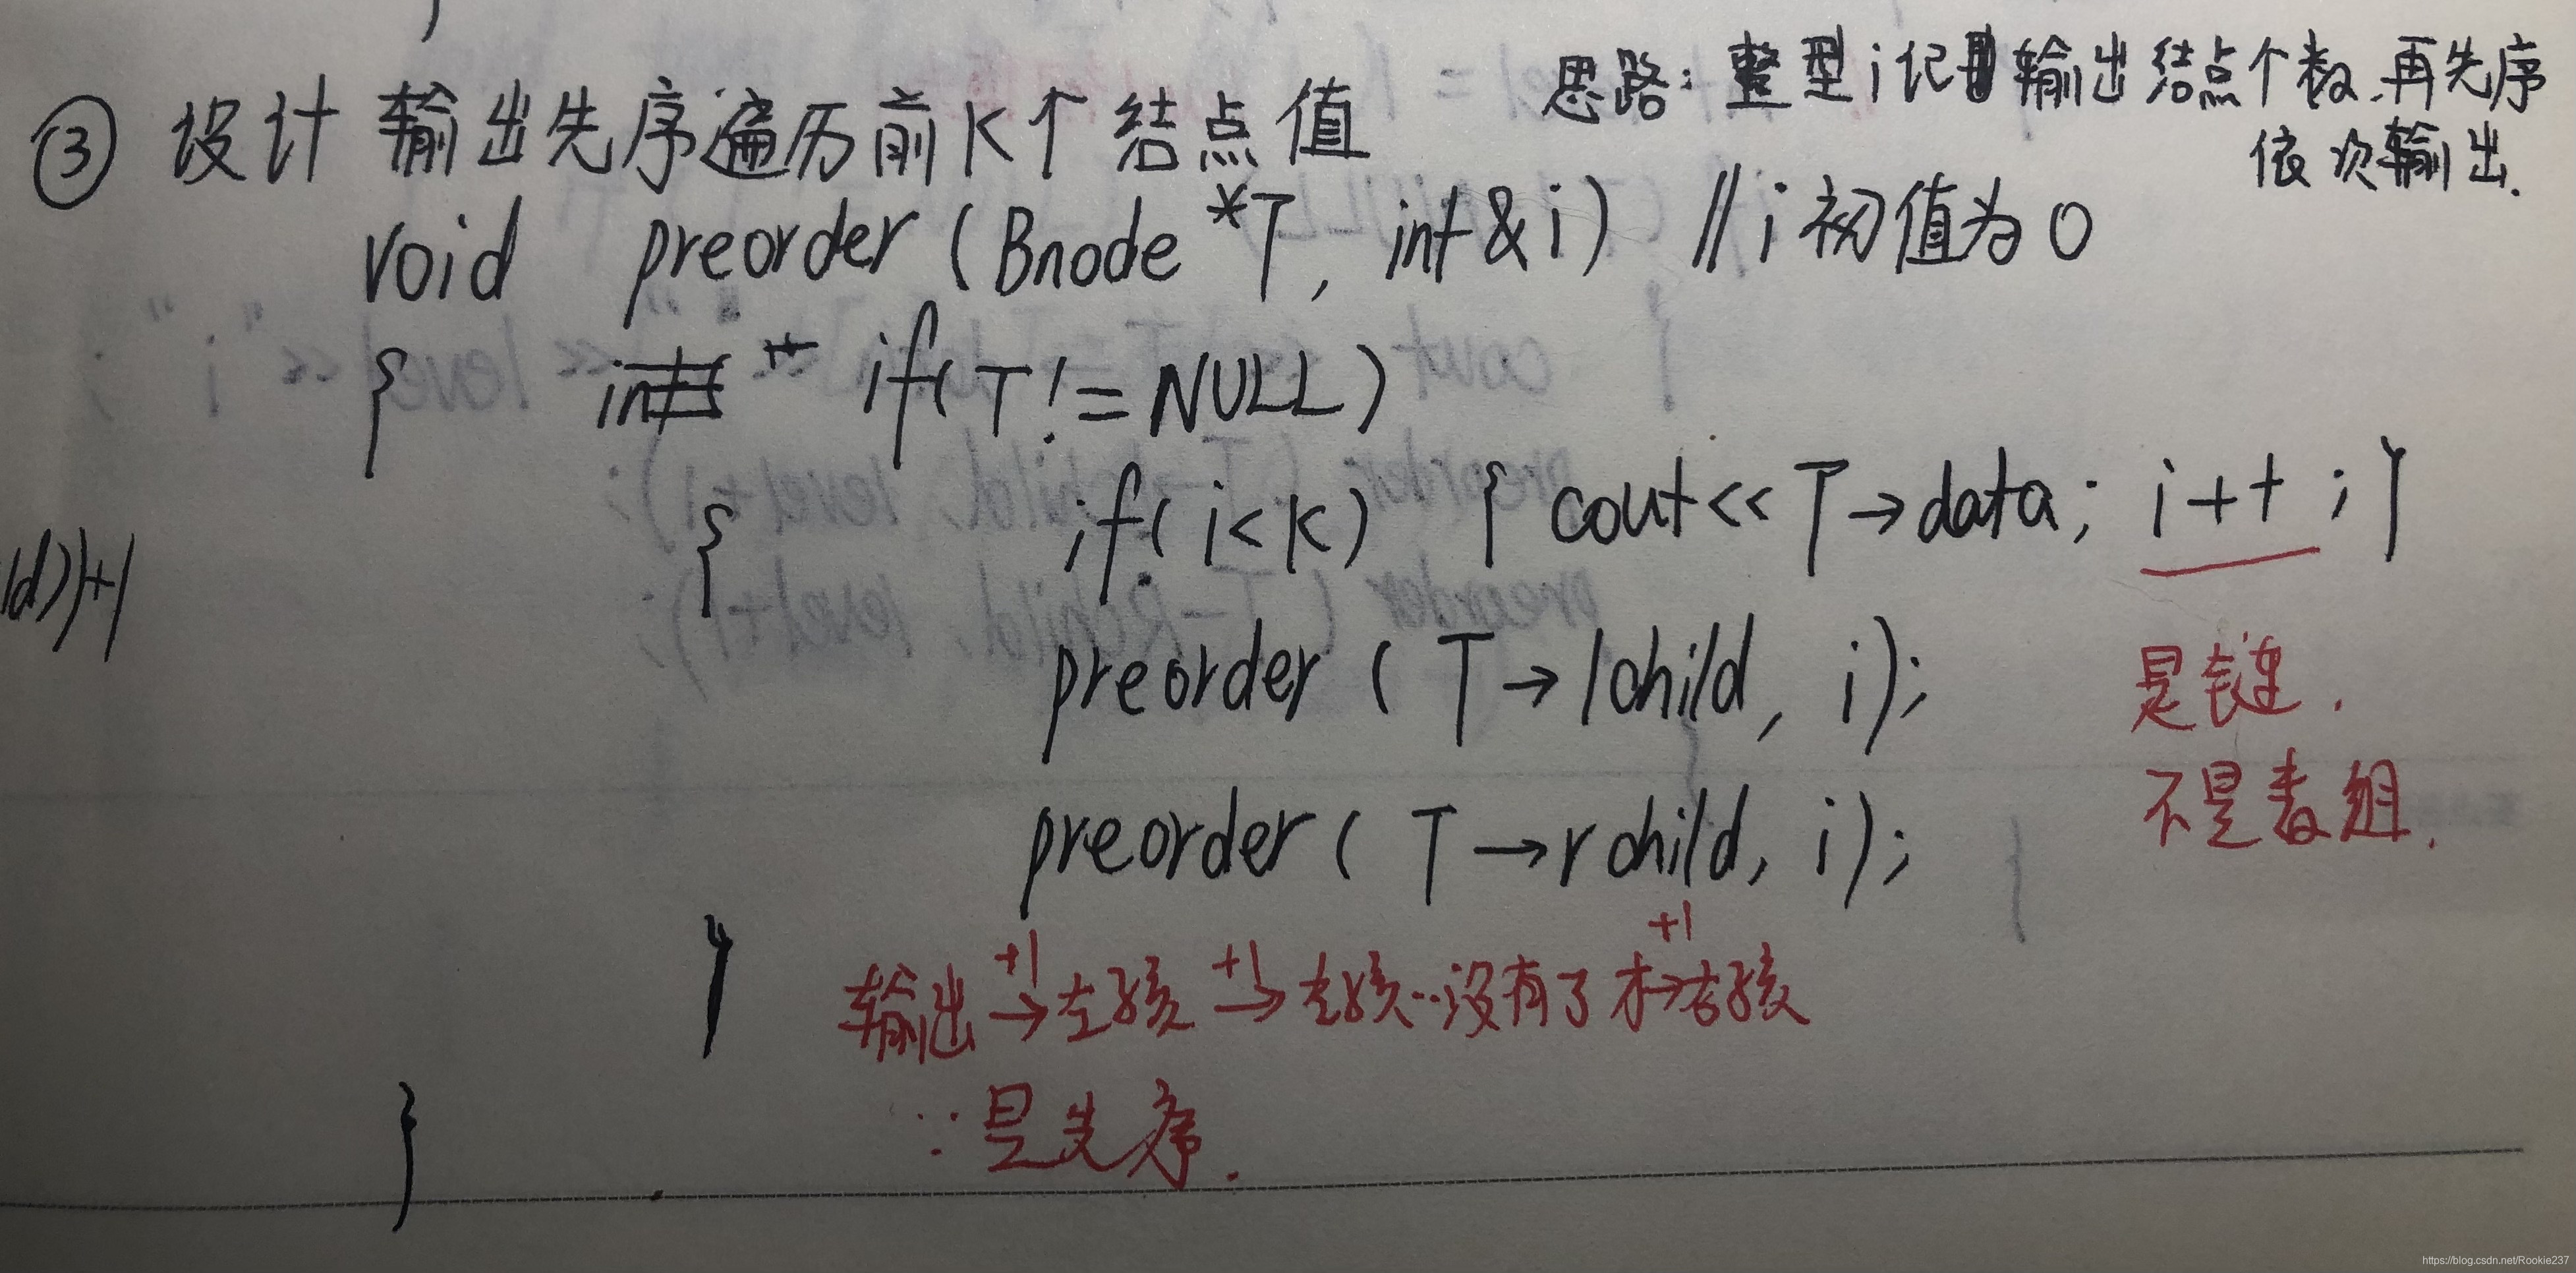 ③ 设计 输出先序遍历前K个结点值
思路: 整型i记输出结点个数.再先序
依次输出.
void preorder (Bnode *T, int &i) // i初值为0
{ if(T != NULL)
{ if(i<K) { cout<<T→data; i++; }
ld))+1
preorder (T→lchild, i);
是链.
preorder (T→rchild, i);
不是数组.
}
+1 +1 +1
输出→左孩→左孩…没有了才→右孩
∵是先序.
}
https://blog.csdn.net/Rookie237